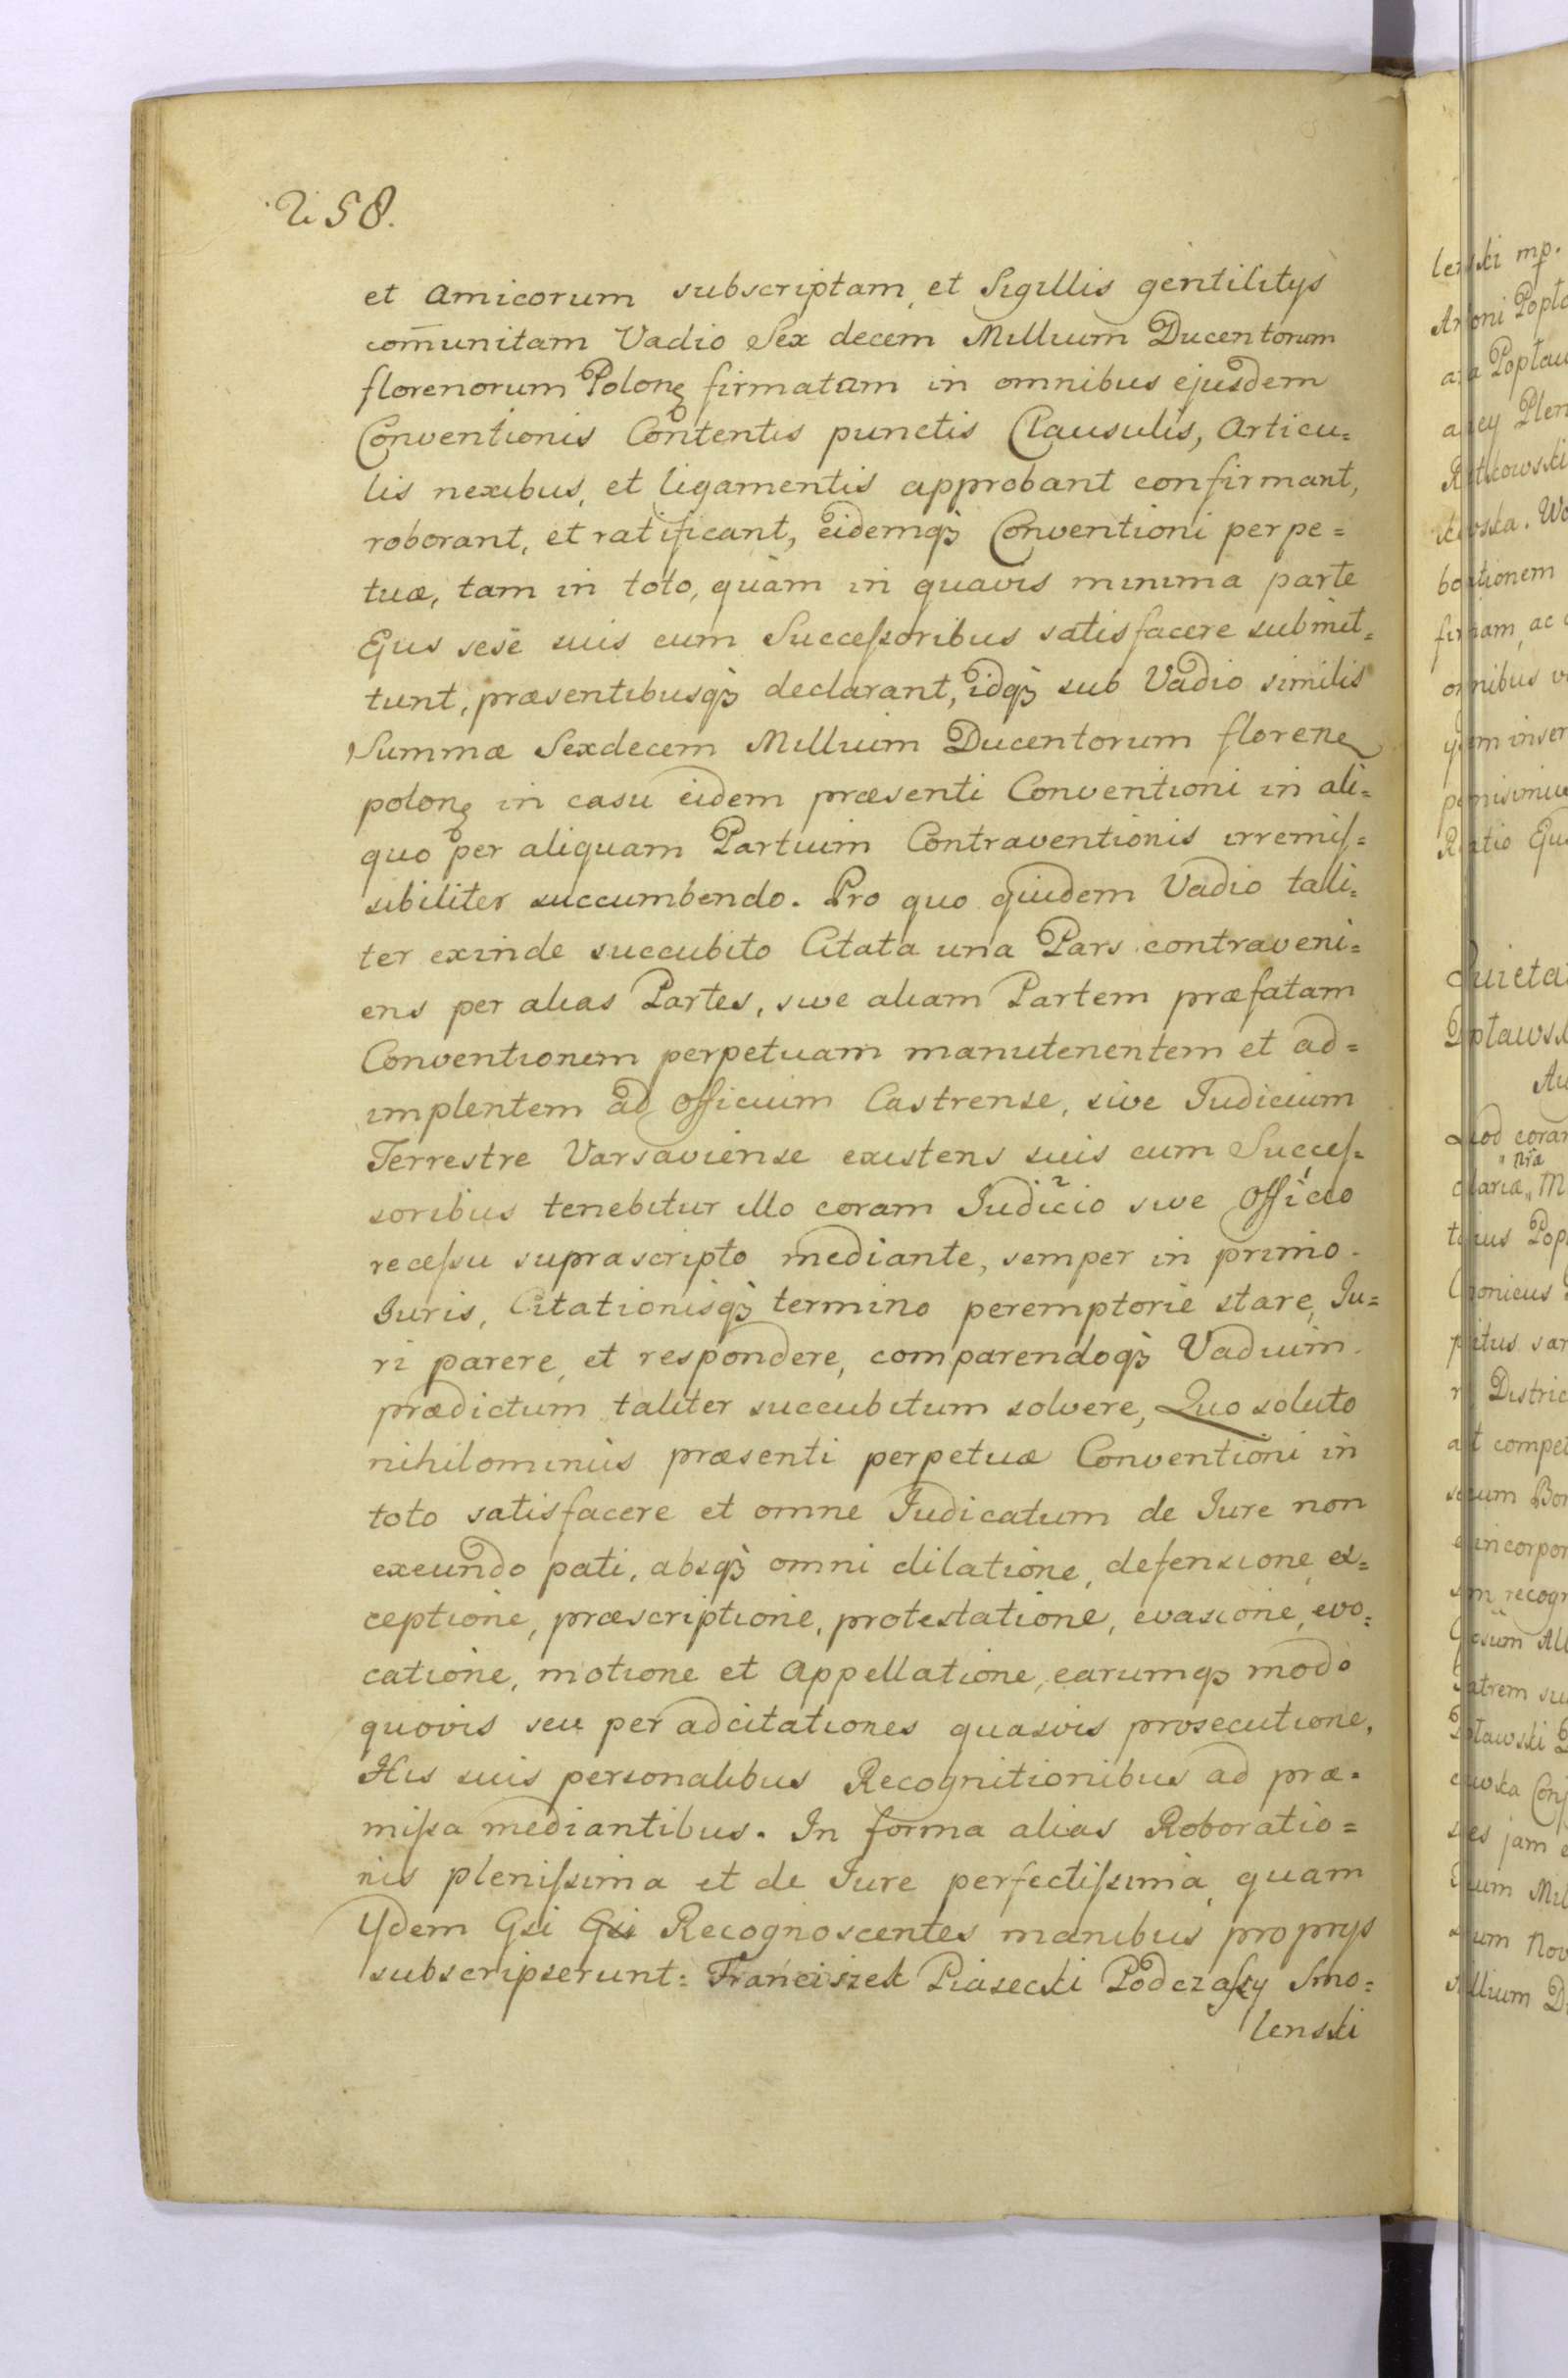 258.
et Amicorum subscriptam, et Sigillis gentilitys
com̄unitam Vadio Sex decem Millium Ducentorum
florenorum Polonȩ firmatam in omnibus ejusdem
Conventionis Contentis punctis Clausulis, Articu=
lis nexibus, et ligamentis approbant confirmant,
roborant, et ratificant, eidemqꝫ Conventioni perpe=
tuæ, tam in toto, quàm in quavis minima parte
Ejus sese suis cum Succeſsoribus satisfacere submit=
tunt, præsentibusqꝫ declarant, idqꝫ sub Vadio similis
Summæ Sexdecem Millium Ducentorum florene
polonȩ in casu eidem præsenti Conventioni in ali=
quo per aliquam Partium Contraventionis irremiſ=
sibiliter succumbendo. Pro quo quidem Vadio tali=
ter exinde succubito Citata una Pars contraveni=
ens per alias Partes, sive aliam Partem præfatam
Conventionem perpetuam manutenentem et ad=
implentem ad Officium Castrense, sive Judicium
Terrestre Varsaviense existens suis cum Succeſ=
soribus tenebitur illo coram Judicio sive Officio
receſsu suprascripto mediante, semper in primo
Juris, Citationisqꝫ termino peremptorie stare, Ju=
ri parere, et respondere, comparendoqꝫ Vadium
prædictum taliter succubitum solvere, Quo soluto
nihilominùs præsenti perpetuæ Conventioni in
toto satisfacere et omne Judicatum de Jure non
exeundo pati, absqꝫ omni dilatione, defensione, ex=
ceptione, præscriptione, protestatione, evasione, evo=
catione, motione et Appellatione, earumqꝫ modo
quovis seu per adcitationes quasvis prosecutione,
His suis personalibus Recognitionibus ad præ=
miſsa mediantibus. In forma alias Roboratio=
nis pleniſsima et de Jure perfectiſsima, quam
Ijdem Gsi Gsi Recognoscentes manibus proprijs
subscripserunt: Franciszek Piasecki Podczaſzy Smo=
lenski